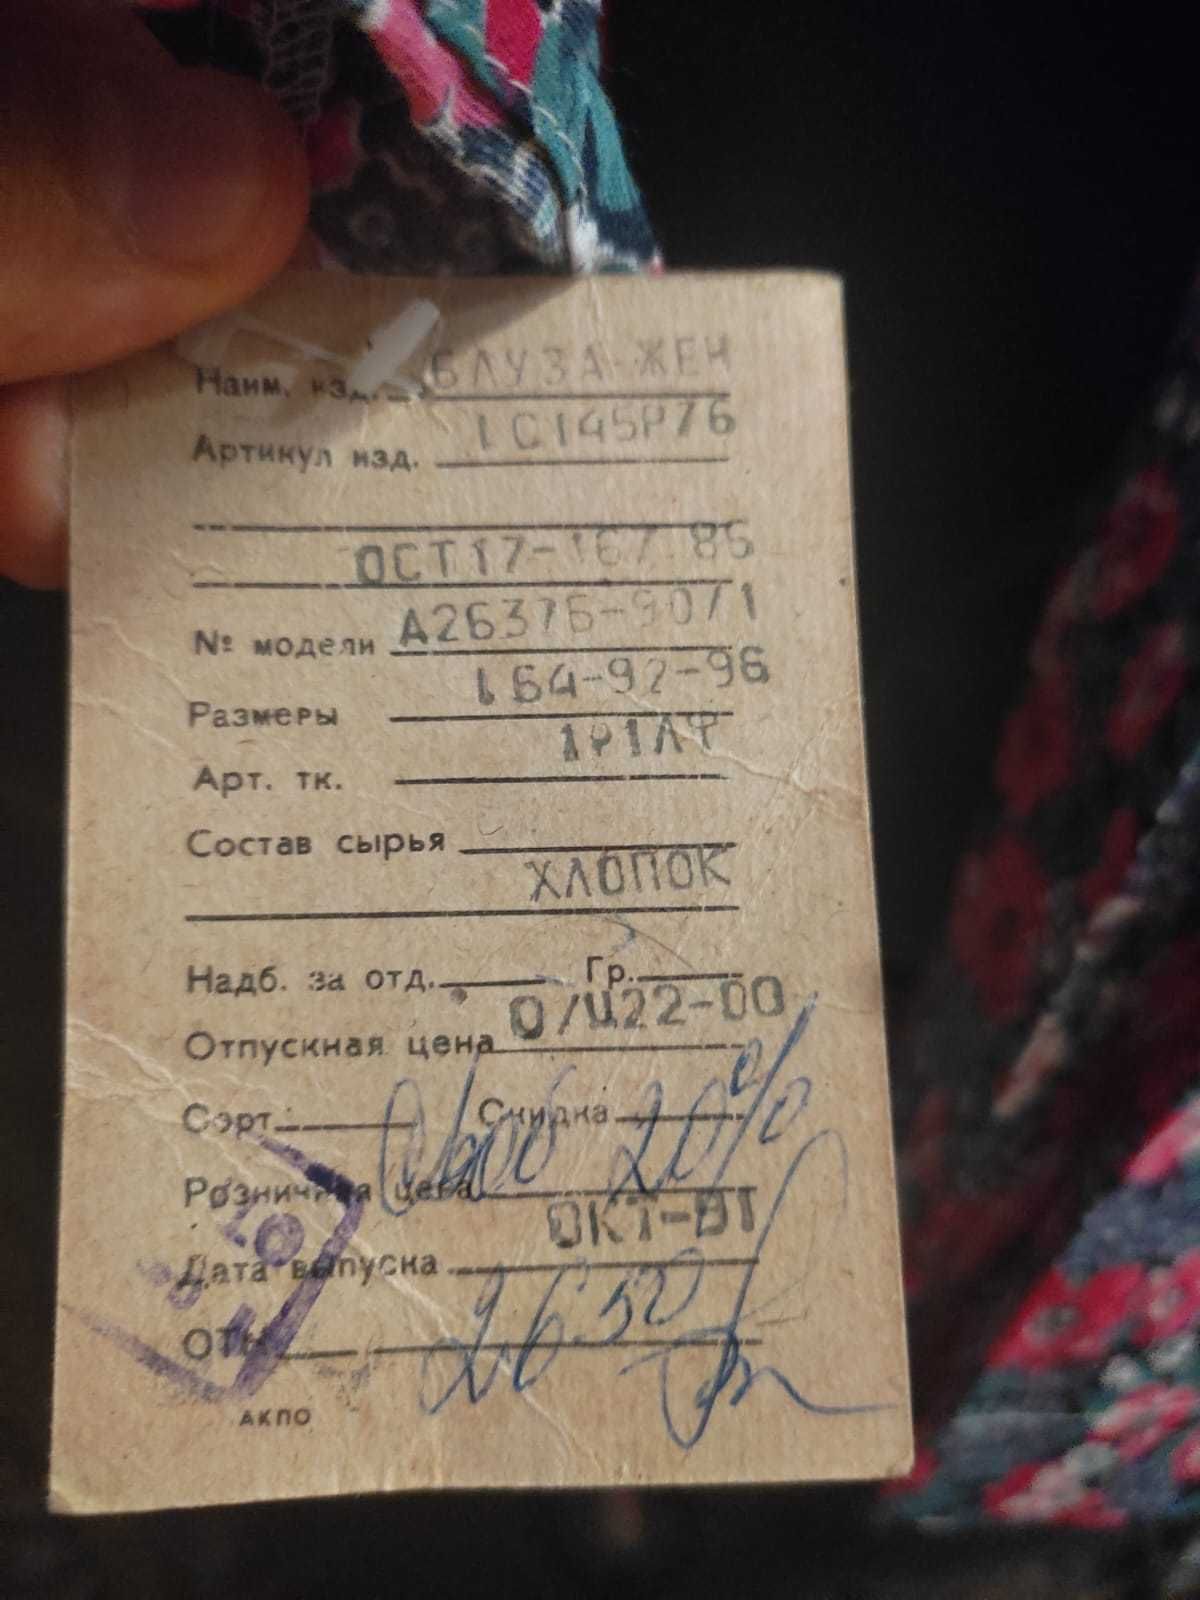 Наим. изд. БЛУЗА ЖЕН
Артикул изд. 1С145Р76
ОСТ17-167 86
№ модели А26376-90/1
Размеры 164-92-96
Арт. тк.
Состав сырья
ХЛОПОК
Надб. за отд. Гр.
Отпускная цена О/Ц22-00
Сорт Скидка 20%
Розничная цена
Дата выпуска ОКТ-91
26 50
ОТК
АКПО